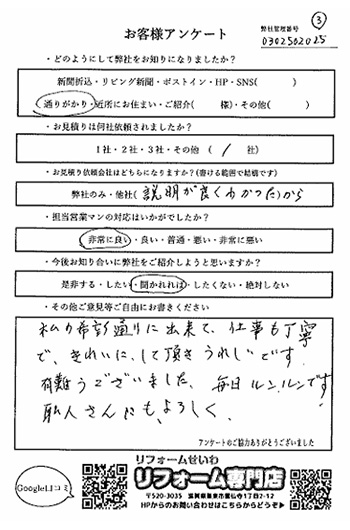 ③
お客様アンケート
弊社管理番号
0302502025
・どのようにして弊社をお知りになりましたか？
新聞折込・リビング新聞・ポストイン・HP・SNS(　　　)
通りがかり・近所にお住まい・ご紹介(　　　様)・その他(　　　)
・お見積りは何社依頼されましたか？
1社・2社・3社・その他 ( / 社)
・お見積り依頼会社はどちらになりますか？(書ける範囲で結構です)
弊社のみ・他社(説明が良くわかつた)から
・担当営業マンの対応はいかがでしたか？
非常に良い・良い・普通・悪い・非常に悪い
・今後お知り合いに弊社をご紹介しようと思いますか？
是非する・したい・聞かれれば・したくない・絶対しない
・その他ご意見等ご自由にお書きください
私の希望通りに出来て、仕事も丁寧
で、きれいに、して頂きうれしいです。
有難うございました、毎日ルンルンです
職人さんにも、よろしく、
アンケートのご協力ありがとうございました
Google口コミ
リフォームせいわ
リフォーム専門店
〒520-3035 滋賀県栗東市霊仙寺1丁目2-12
HPからのお問い合わせはこちらからどうぞ▶